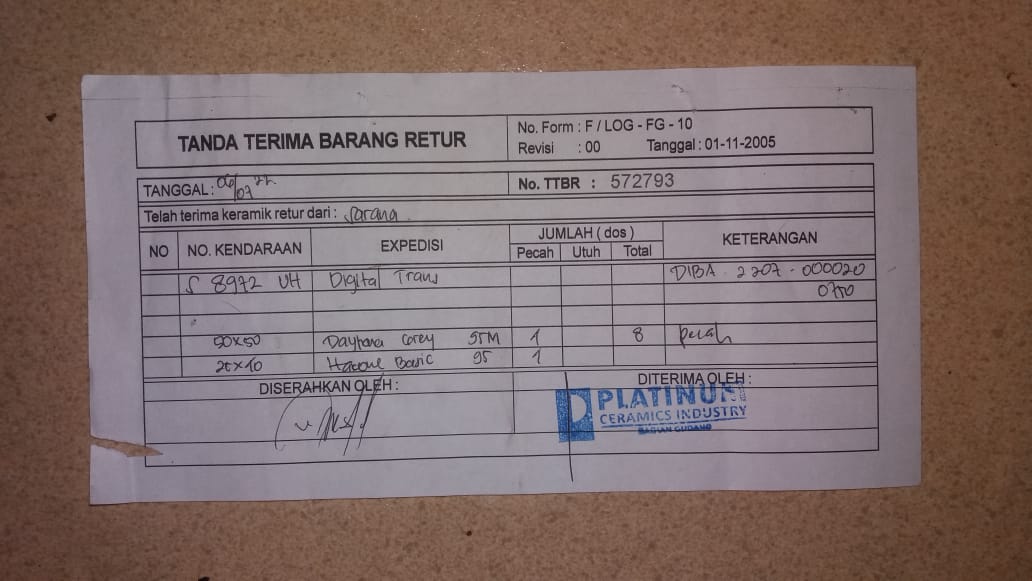 TANDA TERIMA BARANG RETUR
No. Form : F / LOG - FG - 10
Revisi : 00 Tanggal : 01-11-2005
TANGGAL : 06/07 22
No. TTBR : 572793
Telah terima keramik retur dari : Sarana
NO NO. KENDARAAN EXPEDISI JUMLAH ( dos ) KETERANGAN
Pecah Utuh Total
S 8972 UH Digital Trans DIBA . 2207 - 000020
0750
50x50 Daytona Grey 95M 1 8 pecah
20x40 Basic 95 1
DISERAHKAN OLEH : DITERIMA OLEH :
PLATINUM
CERAMICS INDUSTRY
BAGIAN GUDANG